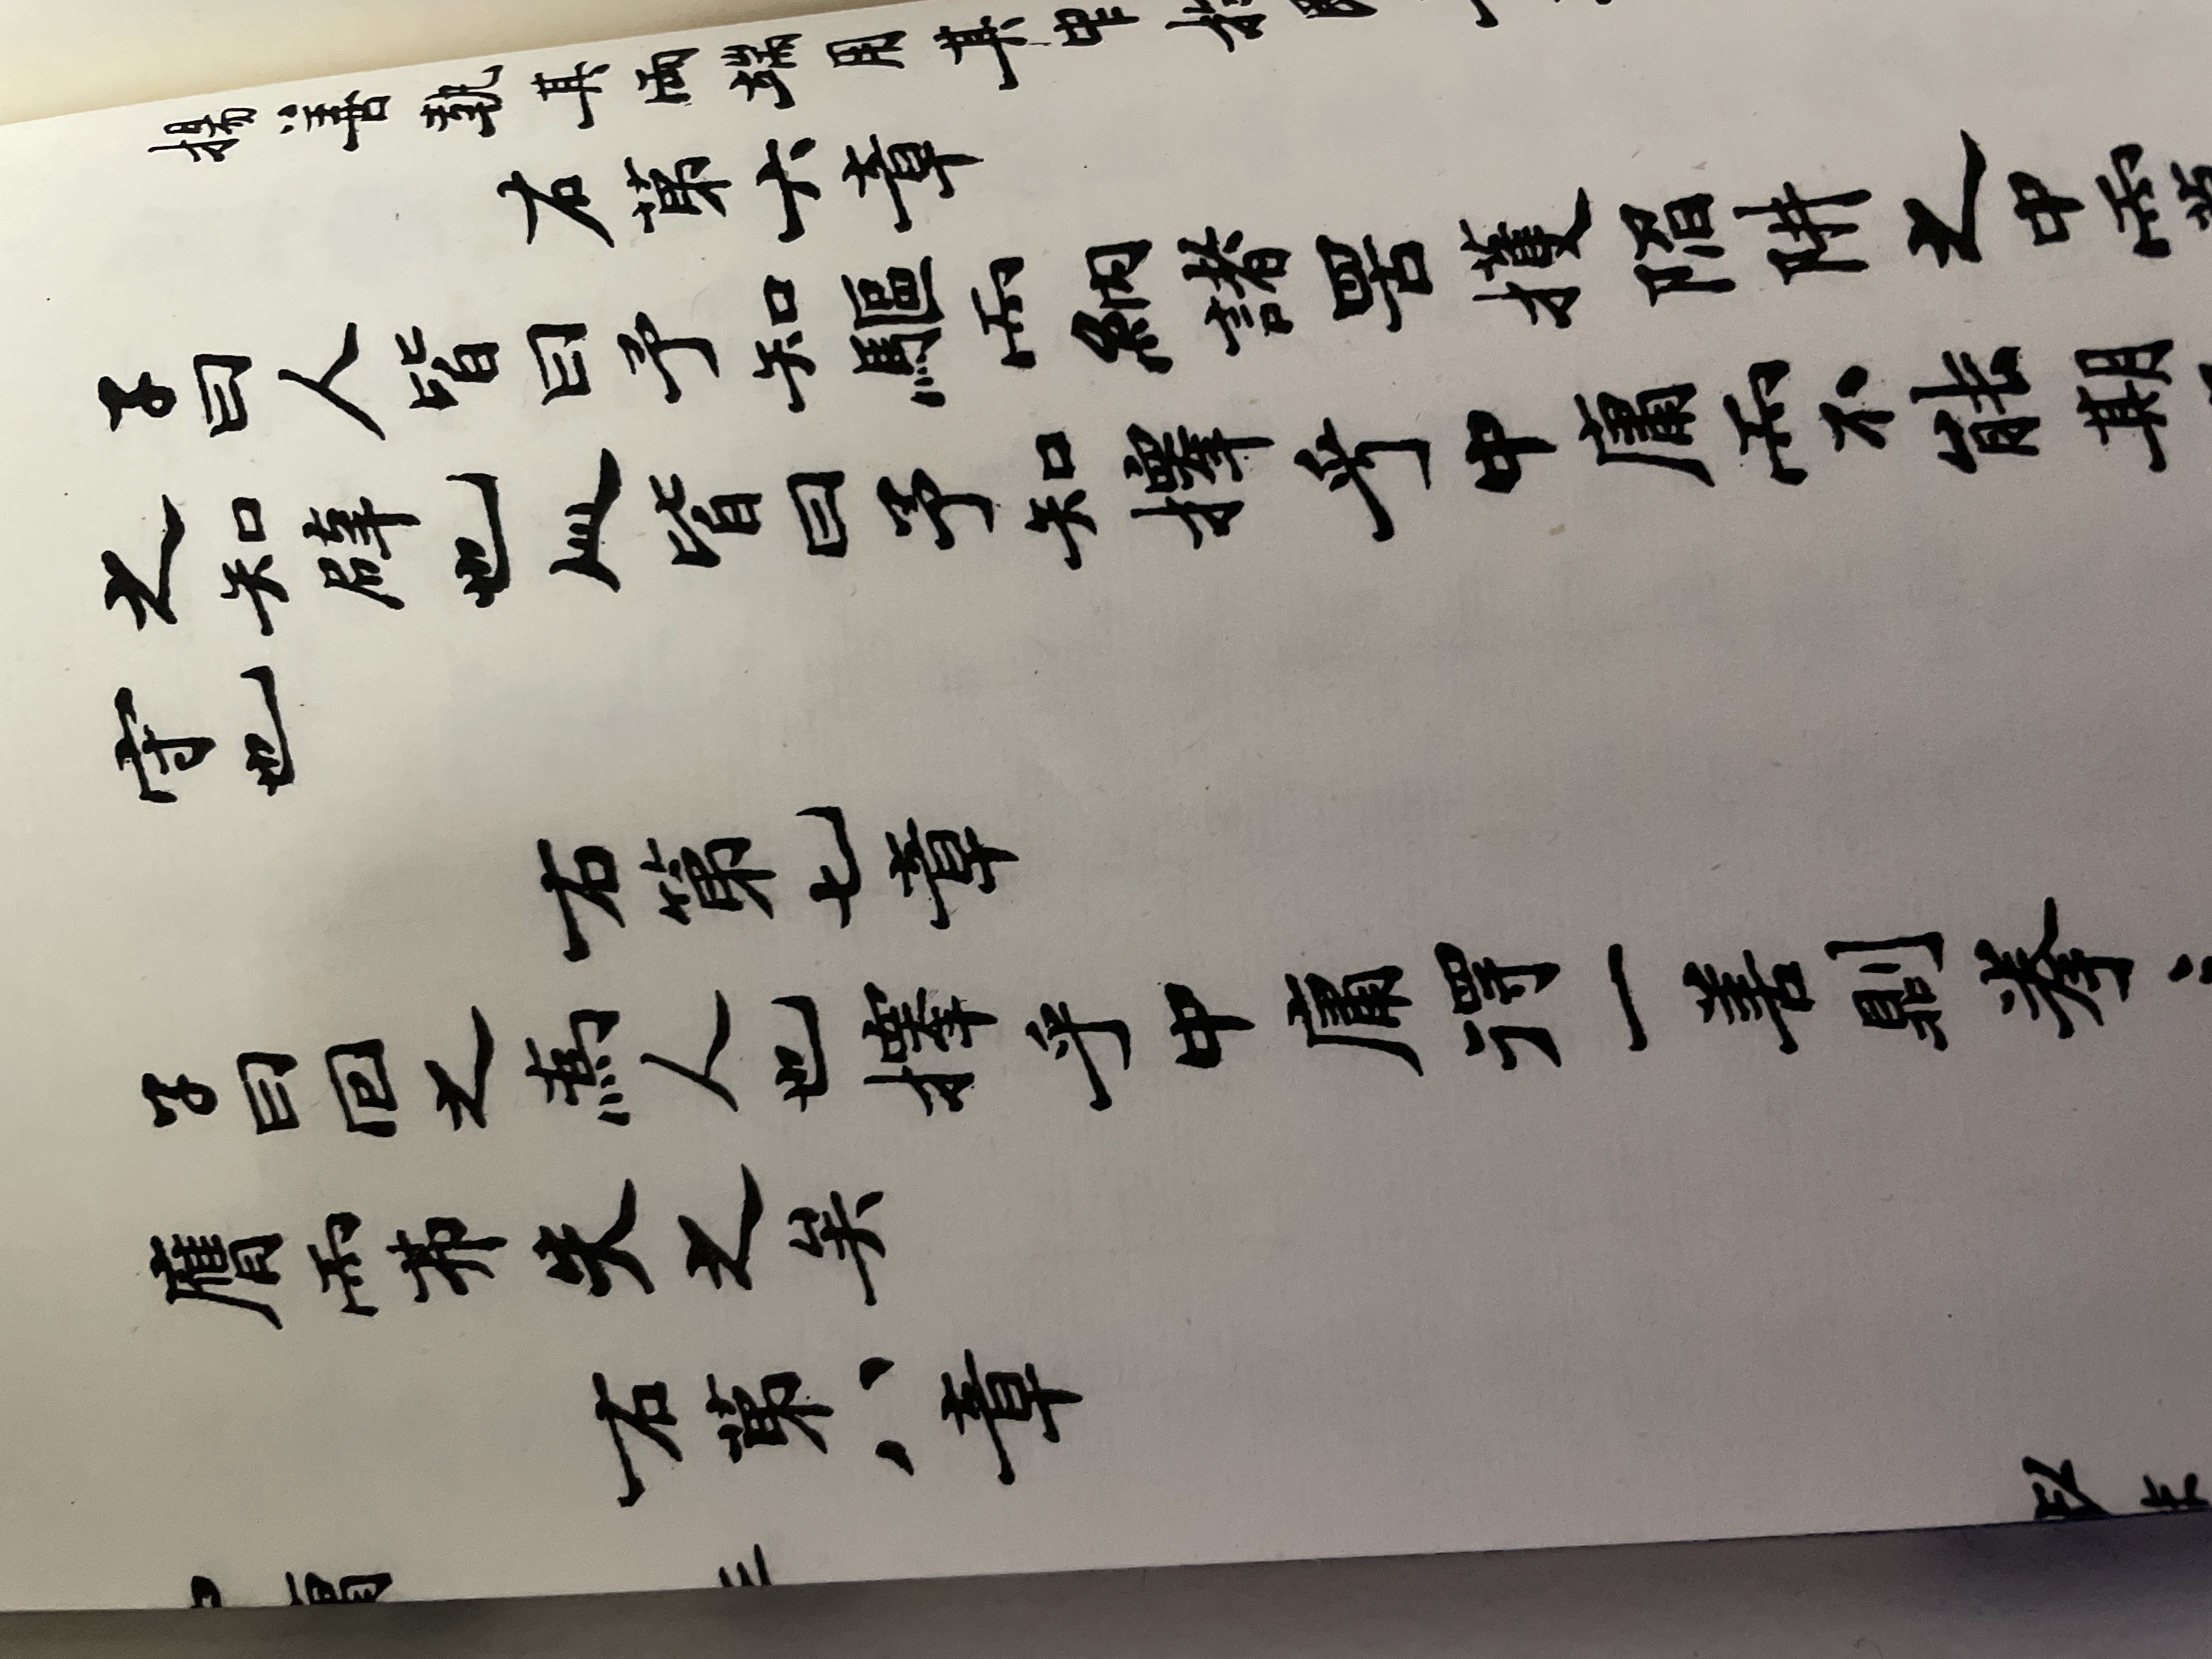 揚善執其兩端用其中於
右第六章
子曰人皆曰予知驅而納諸罟擭陷阱之中而
之知辟也人皆曰予知擇乎中庸而不能期
守也
右第七章
子曰回之為人也擇乎中庸得一善則拳
膺而弗失之矣
右第八章